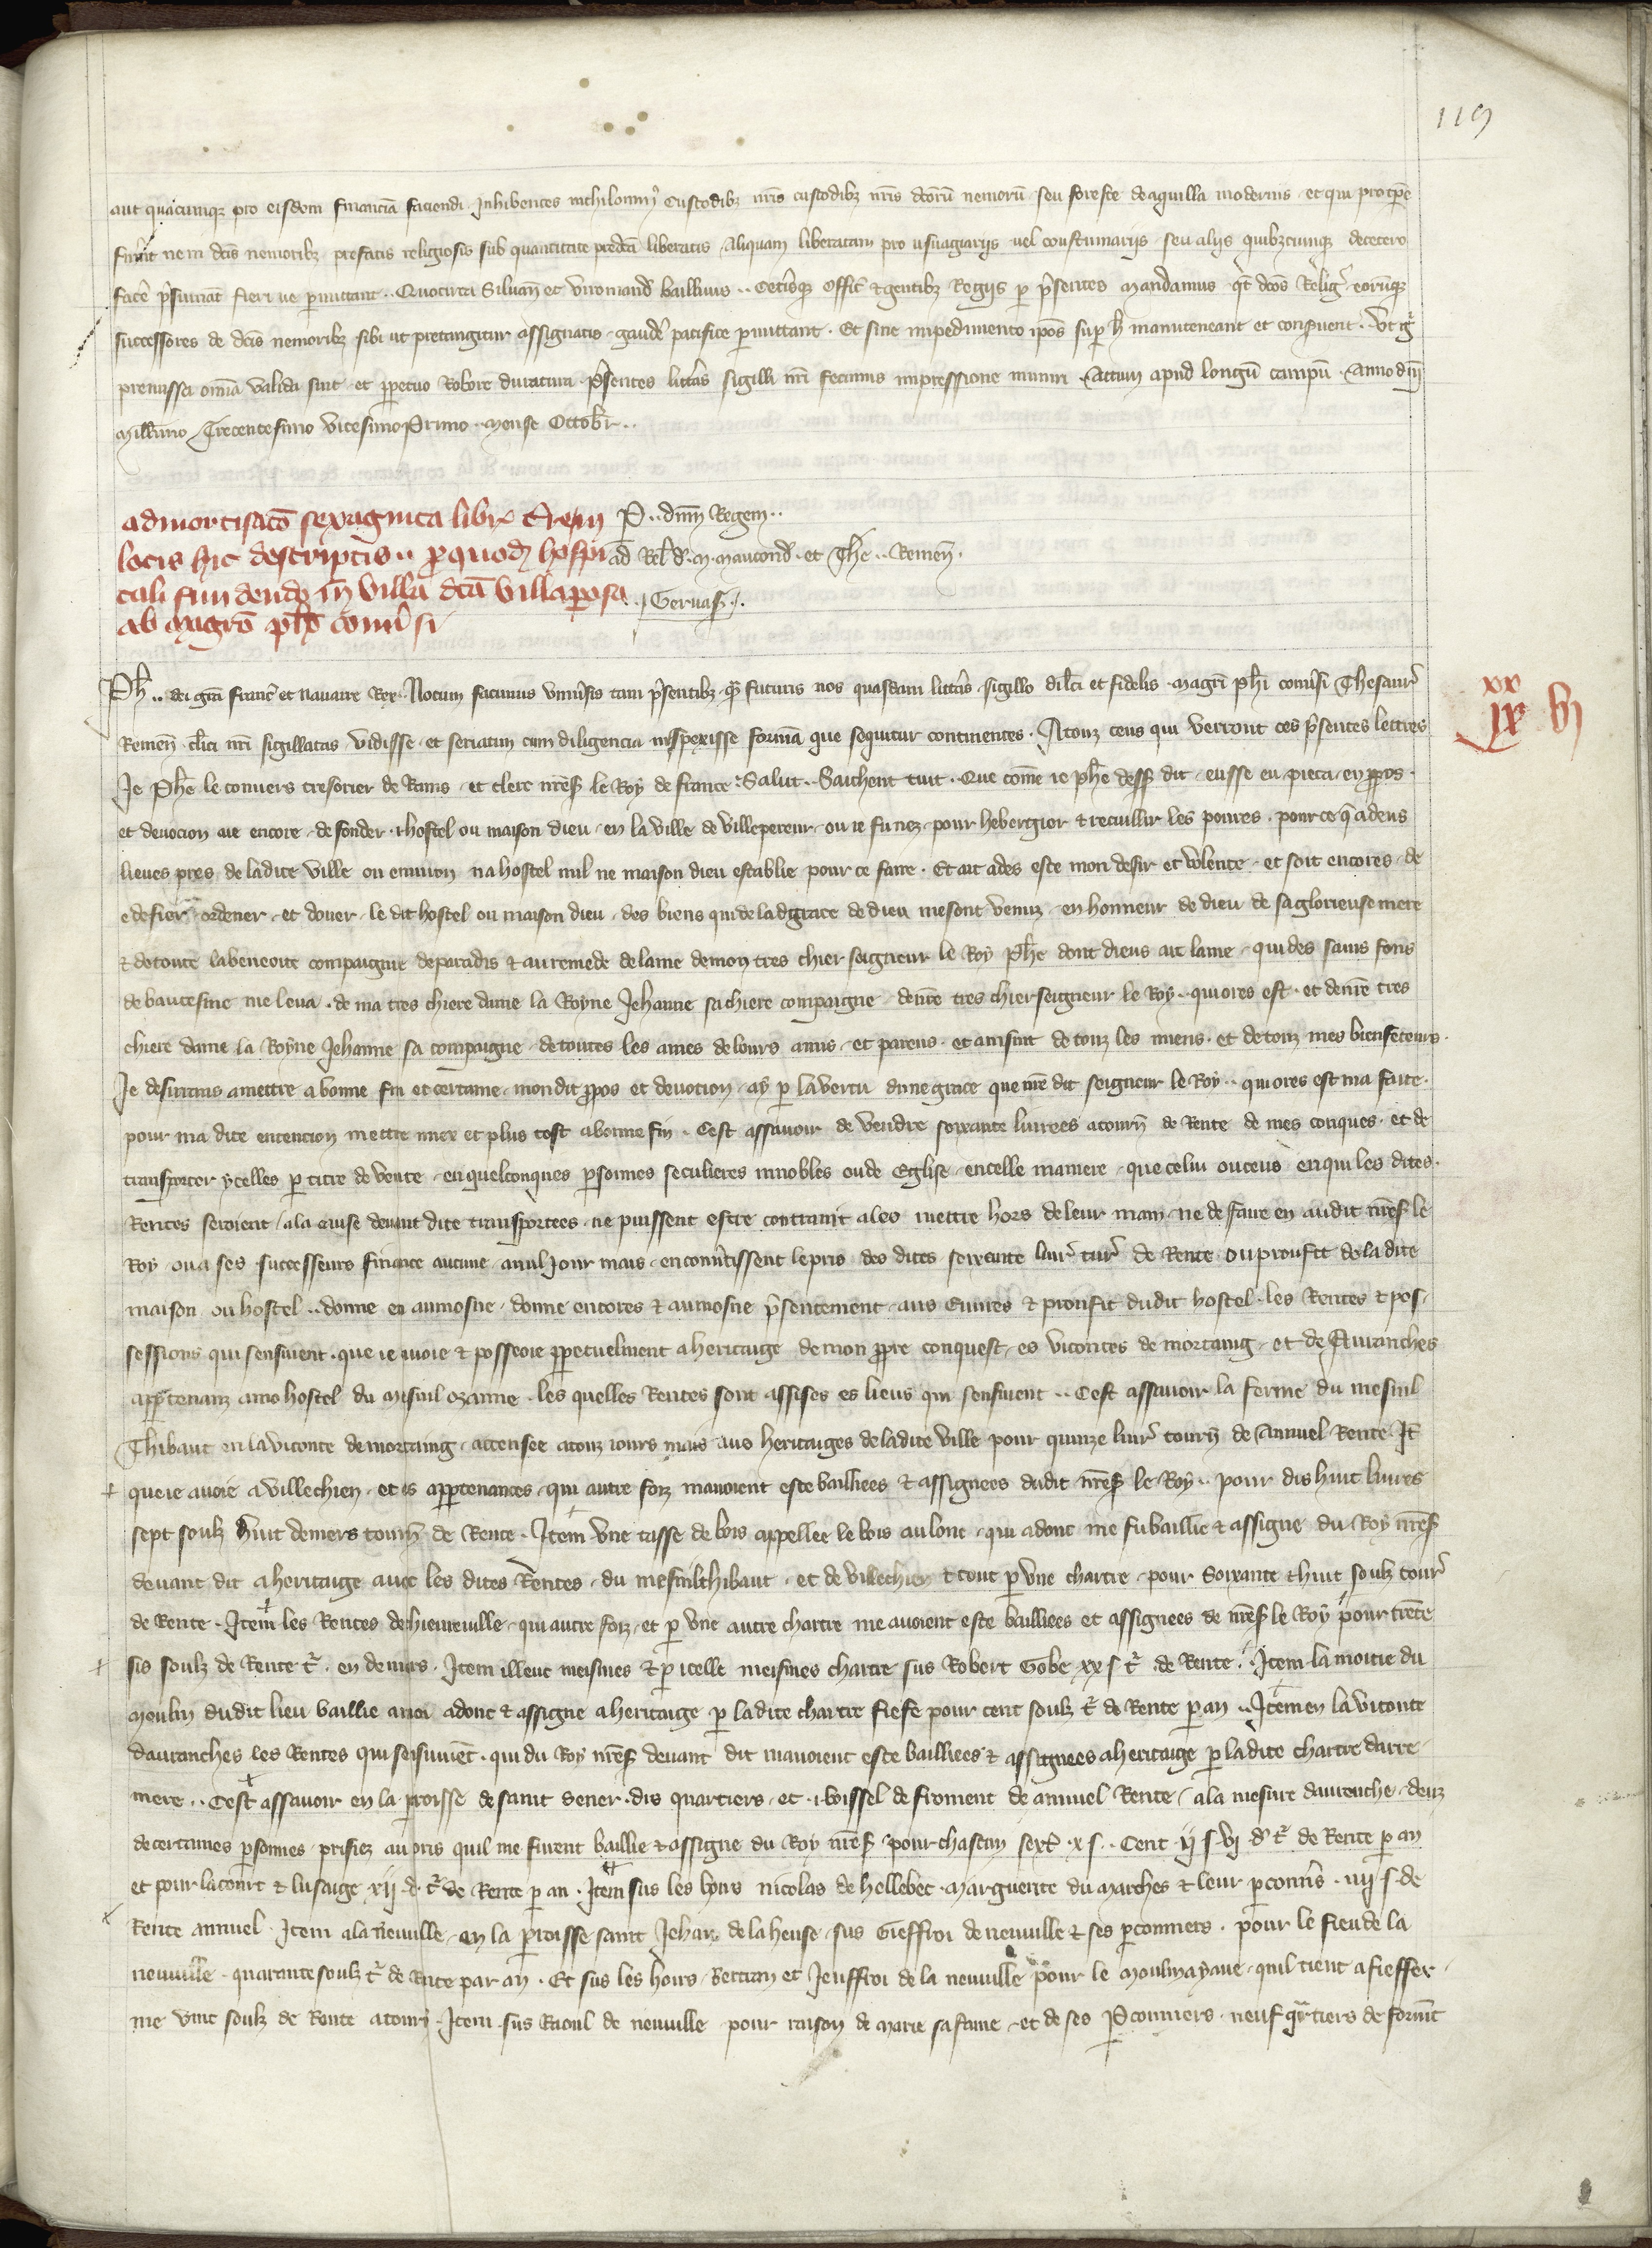 119
aut quacumque pro eisdem financiā faciendi Inhibentes nichilomiꝰ Custodibꝫ nr̄is custodibꝫ nr̄is dc̄orū nemorū seu foreste de aquilla modernis et qui pro tp̄e
fuerint ne in dc̄is nemoribꝫ prefatis religiosis sub quantitate predc̄a liberatis Aliquam liberatam pro usuagiariis uel coustumariis seu aliis quibꝫcumqꝫ decetero
facē p̄sumāt fieri ue p̱mittant .. Quocirca Siluan̄ et Viromand̄ bailliuis .. Ceterisqꝫ offic̄ et gentibꝫ Regiis p̱ p̄sentes Mandamus qt̄ dc̄os Reliḡ eorūqꝫ
successores de dc̄is nemoribꝫ sibi ut pretangitur assignatis gaudē pacifice p̱mittant . Et sine impedimento ip̄os sup̱ h̄ manuteneant et conseruent . Vt g̊
premissa om̄ia valida sint et p̱petuo Robore duratura p̄sentes litt̄as sigilli nr̄i fecimus impressione muniri . Actum apud longū campū . Anno dn̄i
Mill̄imo Trecentesimo vicesimo Primo .. mense Octobr̄ ..
admortisac̄o sexaginta libr̄ t̄ em̄
P .. dnm̄ Regem ..
locis hic descriptis .. p̱ quod̄ hospi
ad Rel̄ d̄ . M . Maucond̄ . et Th̄e .. Remen̄ .
tali fundendo in villa dc̄a villaperosa
. Geruas̄ ..
ab Magr̄o ph̄o conu̾si
Ph̄ .. dei gr̄a franc̄ et nauarre Rex . Notum facimus vniu̾sis tam p̄sentibꝫ qꝫ futuris nos quasdam litt̄as sigillo dil̄ci et fidelis magr̄i ph̄i conu̾si Thesaur̄
xx
ix bi
Remen̄ cl̄ici nr̄i sigillatas vidisse et seriatim cum diligencia inspexisse formā que sequitur continentes . A touz ceus qui verront ces p̄sentes lettres
Je Ph̄e le conuers tresorier de Rains et clerc nr̄es̄ le Roy de france . Salut .. Saichent tuit . Que com̄e ie ph̄e dess̄ dit eusse eu pieca en p̱pos .
et deuocion aie encore de fonder . i . hostel ou maison dieu en la ville de villepereur ou ie fu nez pour hebergier et recuillir les poures . pour ce q̄ a deus
lieues pres de ladite ville ou enuiron na hostel nul ne maison dieu establie pour ce faire . Et ait ades este mon desir et volente et soit encores de
edefier ordener et douer le dit hostel ou maison dieu des biens qui de la grace de dieu me sont venuz en honneur de dieu de sa glorieuse mere
et de toute la beneoite compaignie de paradis et au remede de lame de mon tres chier seigneur le Roy Ph̄e dont dieus ait lame qui des sains fons
de bautesme me leua . de ma tres chiere dame la Royne Jehanne sa chiere compaigne de nr̄e tres chier seigneur le Roy .. qui ores est . et de nr̄e tres
chiere dame la Royne Jehanne sa compaigne de toutes les ames de leurs amis et parens . et ausint de touz les miens . et de touz mes bienfeteurs .
Je desirrans a mettre a bonne fin et certaine mon dit p̱pos et deuotion ay p̱ la vertu dune grace que nr̄e dit seigneur le Roy .. qui ores est ma faite .
pour ma dite entencion mettre miex et plus tost a bonne fin . Cest assauoir de vendre soixante liurees a tourn̄ de Rente de mes conques . et de
transporter ycelles p̱ titre de vente en quelconques p̱sonnes seculieres innobles ou de Eglise en telle maniere que celui ou ceus en qui les dites .
Rentes seroient a la guise deuant dite transportees ne puissent estre contraint a les mettre hors de leur main ne de faire en audit nr̄es̄ le
Roy ou a ses successeurs finance aucune a nul jour mais en conu̾tissent le pris des dites soixante liur̄ tur̄ de Rente ou proufit de la dite
maison ou hostel .. donne en aumosne donne encores et aumosne p̄sentement aus Euures et proufit dudit hostel . les Rentes et pos
sessions qui sensuient . que ie auoie et posseoie p̱petuelment a heritaige de mon p̱pre conquest es vicontes de mortaing et de Auranches
app̱tenanz a mo hostel du mesnil ozanne . les quelles Rentes sont assises es lieus qui sensuient .. Cest assauoir la ferme du mesnil
Thibaut en la viconte de mortaing accensee a touz iours mais aus heritaiges de ladite ville pour quinze liur̄ tourn̄ de Annuel Rente It̄
que ie auoie a villechien et es app̱tenances qui autre foiz mauoient este bailliees et assignees dudit nr̄es̄ le Roy .. pour dis huit liures
sept soulz huit deniers tourn̄ de Rente . Item vne tasse de bois appellee le bois au lonc qui adont me fu baillie et assigne du Roy nr̄es̄
deuant dit a heritaige auec les dites Rentes du mesnilthibaut et de villechien et tout p̱ vne chartre pour Soixante et huit soulz tour̄
de Rente . Item les Rentes de hieneuille qui autre foiz et p̱ vne autre chartre me auoient este bailliees et assignees de nr̄es̄ le Roy pour trente
sis soulz de Rente t̄ . en deniers . Item illeuc meismes et p̱ icelle meismes chartre sus Robert Gobe xx s t̄ de Rente . Item la moitie du
Moulin dudit lieu baillie a moi adonc et assigne a heritaige p̱ ladite chartre fiefe pour cent soulz t̄ de Rente p̱ an .. Item en la viconte
dauranches les Rentes qui sensuiuēt . qui du Roy nr̄es̄ deuant dit mauoient este bailliees et assignees a heritaige p̱ ladite chartre darre
niere .. Cest assauoir en la p̱roisse de saint Sener . dis quartiers et . i . boissel de froment de annuel Rente a la mesure dauranche deuz
de certaines p̱sonnes prisiez au pris quil me furent baillie et assigne du Roy nr̄es̄ pour chascun sext̄ . x s . Cent ij s vj d̄ t̄ de Rente p̱ an
et pour lacourt et lusaige xij d̄ t̄ de Rente p̱ an . Item sus les hoirs nicolas de hellebec . Marguerite du Marches et leur p̱conn̄s . iiij s de
Rente annuel . Item a la neuuille en la p̱roisse saint Jehan de la heuse sus Gieffroi de neuuille et ses p̱conniers . pour le fieu de la
neuuille . quarante soulz t̄ de Rente par an . Et sus les hoirs Bertran et Jeuffroi de la neuuille pour le quil tient a fieffer
me vint soulz de Rente a tourn̄ . Item sus Raoul de neuuille pour raison de Marie sa fame et de ses P̱conniers . neuf quartiers de formēt